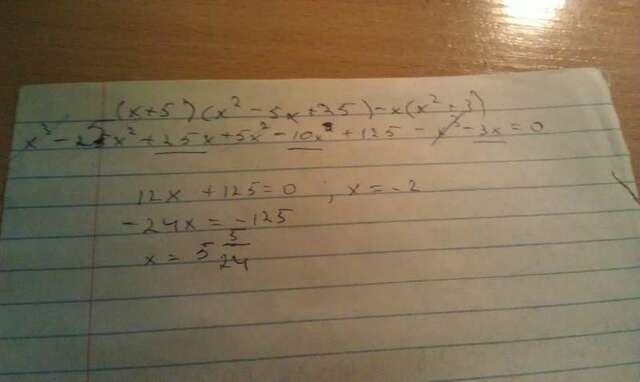 (x+5)(x² - 5x + 25) - x(x² + 3)
x³ - x² + 25x + 5x² - 10x² + 125 - x³ - 3x = 0
12x + 125 = 0 ; x = -2
-24x = -125
x = 5 5/24